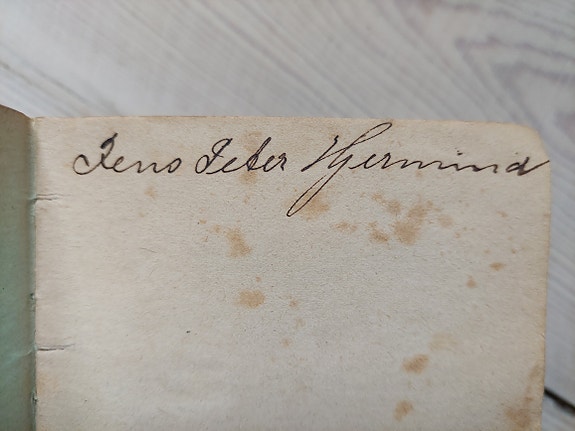 Jens Peter Hjermind